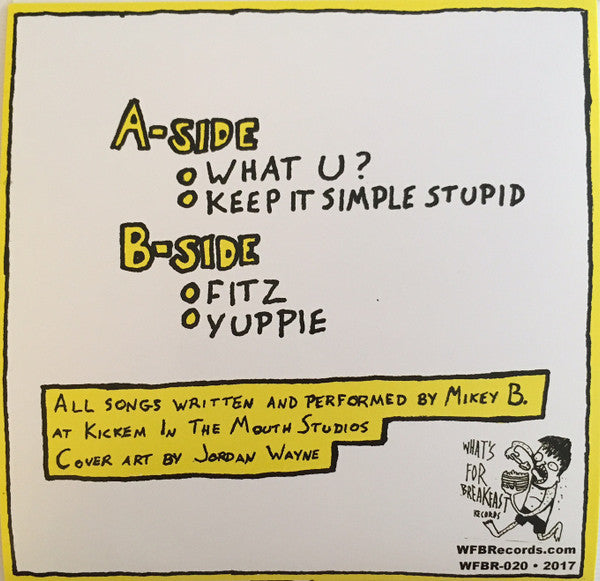 A-SIDE
WHAT U?
KEEP IT SIMPLE STUPID
B-SIDE
FITZ
YUPPIE
ALL SONGS WRITTEN AND PERFORMED BY MIKEY B.
AT KICKEM IN THE MOUTH STUDIOS
COVER ART BY JORDAN WAYNE
WHAT'S
FOR
BREAKFAST
RECORDS
WFBRecords.com
WFBR-020 • 2017